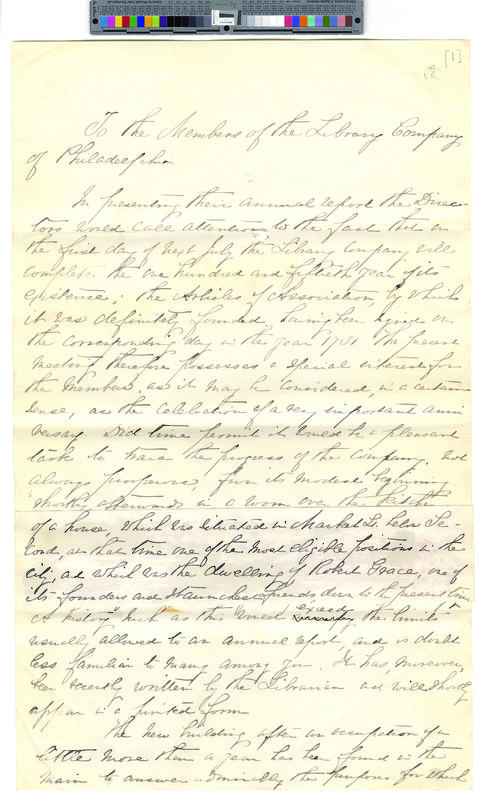 [1]
(2)
To the Members of the Library Company
of Philadelphia
In presenting their annual report the Direc-
tors would call attention to the fact that on
the first day of next July the Library Company will
complete the one hundred and fiftieth year of its
existence; the Articles of Association, by which
it was definitely founded, having been agreed on
the corresponding day in the year 1731. The present
meeting therefore possesses a special interest for
the Members, as it may be considered, in a certain
sense, as the celebration of a very important anni
versary. Did time permit it would be a pleasant
task to trace the progress of the Company, not
always prosperous, from its modest beginning
shortly afterwards in a room over the kitchen
of a house, which was situated in Market St. below Se-
cond, at that time one of the most eligible positions in the
city, and which was the dwelling of Robert Grace, one of
its founders and staunchest friends down to the present time
A "history" such as this would exceed the limits
usually allowed to an annual report and is doubt
less familiar to many among you. It has, moreover,
been recently written by the Librarian and will shortly
appear in a printed form
The new building after an occupation of a
little more than a year has been found in the
main to answer admirably the purposes for which